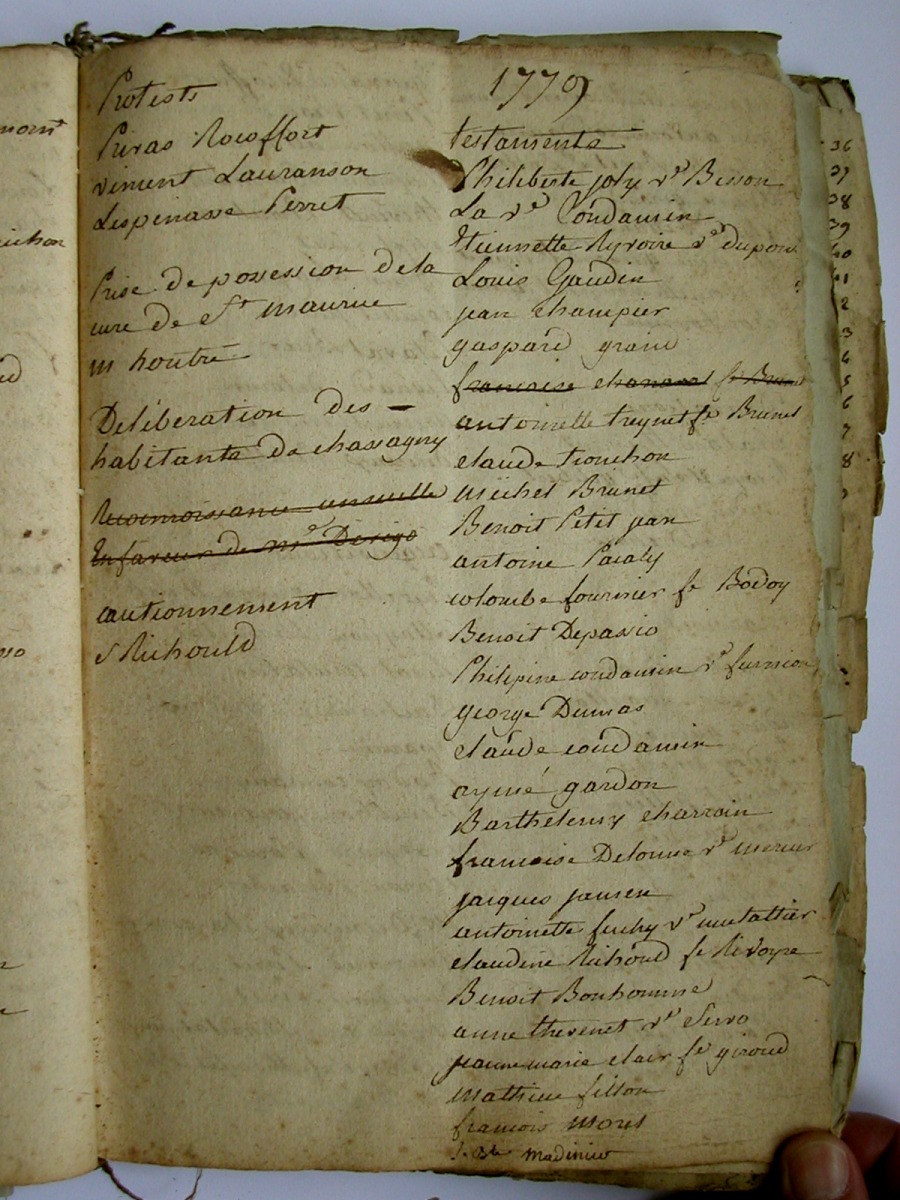 1779
Protests
Piras Rocoffort
viment Lauranson
Lespinasse Perret
Prise de possession de la
cure de St maurice
m houtre
Deliberation des
habitants de chassagny
Reconnoissance
Enfaveur de mr
cautionnement
s Richould
testaments
Philiberte joly ve Besson
La ve Condamin
Etiennette Ryvoire ve dupon
Louis Gaudin
jean champier
gaspard
francoise fe Brunet
antoinette treynet fe Brunet
claude tronchon
michel Brunet
Benoit Petit jean
antoine Pacaly
colombe fournier fe Bodoy
Benoit Depassio
Philipine condamin ve furnion
george Dumas
claude condamin
aymé gardon
Barthelemy charroin
francoise Delorme ve mercier
jacques jansen
antoinette ve mutattier
claudine Richoud fe Rivoyre
Benoit Bonhomme
anne thevenet ve Servo
jeanne marie clair fe giroud
mathieu fillon
francois mons
j Bte madinier
36
37
38
39
40
41
2
3
4
5
6
7
8